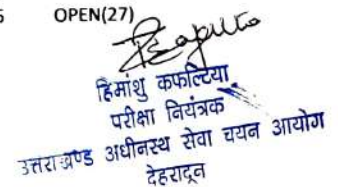 OPEN(27)
हिमांशु कफल्टिया
परीक्षा नियंत्रक
उत्तराखण्ड अधीनस्थ सेवा चयन आयोग
देहरादून